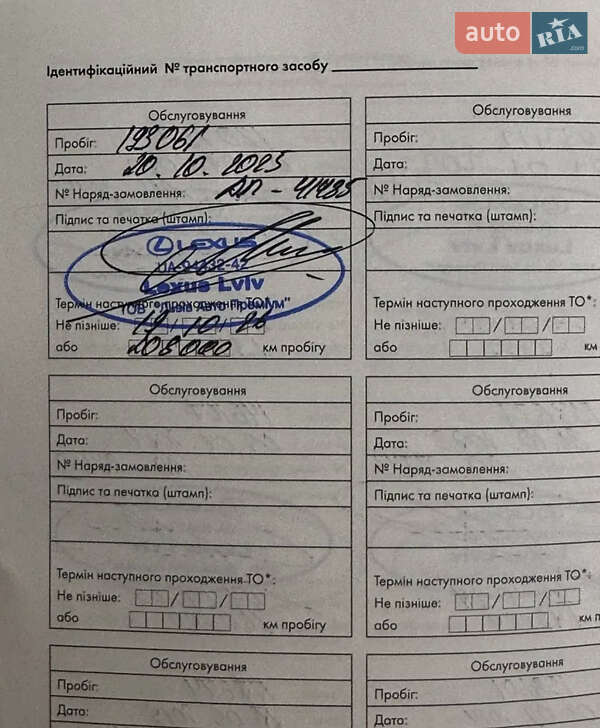 auto RIA .com
Ідентифікаційний № транспортного засобу
Обслуговування
Пробіг: 193061
Дата: 20.10.2025
№ Наряд-замовлення:
Підпис та печатка (штамп):
LEXUS
Lexus Lviv
Термін наступного проходження ТО*:
Не пізніше: 19/10/26
або 208000 км пробігу
Обслуговування
Пробіг:
Дата:
№ Наряд-замовлення:
Підпис та печатка (штамп):
Термін наступного проходження ТО*:
Не пізніше: / /
або км
Обслуговування
Пробіг:
Дата:
№ Наряд-замовлення:
Підпис та печатка (штамп):
Термін наступного проходження ТО*:
Не пізніше: / /
або км пробігу
Обслуговування
Пробіг:
Дата:
№ Наряд-замовлення:
Підпис та печатка (штамп):
Термін наступного проходження ТО*:
Не пізніше: / /
або км п
Обслуговування
Пробіг:
Дата:
Обслуговування
Пробіг:
Дата: